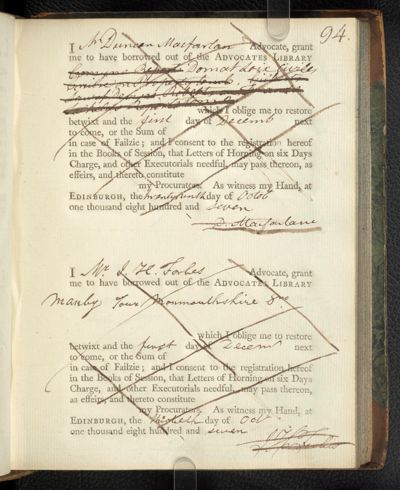 94.
I Mr Duncan Macfarlan Advocate, grant
me to have borrowed out of the ADVOCATES LIBRARY
Domat
which I oblige me to restore
betwixt and the first day of Decemb next
to come, or the Sum of
in case of Failzie; and I consent to the registration hereof
in the Books of Session, that Letters of Horning on six Days
Charge, and other Executorials needful, may pass thereon, as
effeirs, and thereto constitute
my Procurators. As witness my Hand, at
EDINBURGH, the day of Octob
one thousand eight hundred and seven
D. Macfarlane
I Mr J. H. Forbes Advocate, grant
me to have borrowed out of the ADVOCATES LIBRARY
Manby Tour Monmouthshire 8vo
which I oblige me to restore
betwixt and the first day of Decemb next
to come, or the Sum of
in case of Failzie; and I consent to the registration hereof
in the Books of Session, that Letters of Horning on six Days
Charge, and other Executorials needful, may pass thereon,
as effeirs, and thereto constitute
my Procurators. As witness my Hand, at
EDINBURGH, the day of Octr
one thousand eight hundred and seven